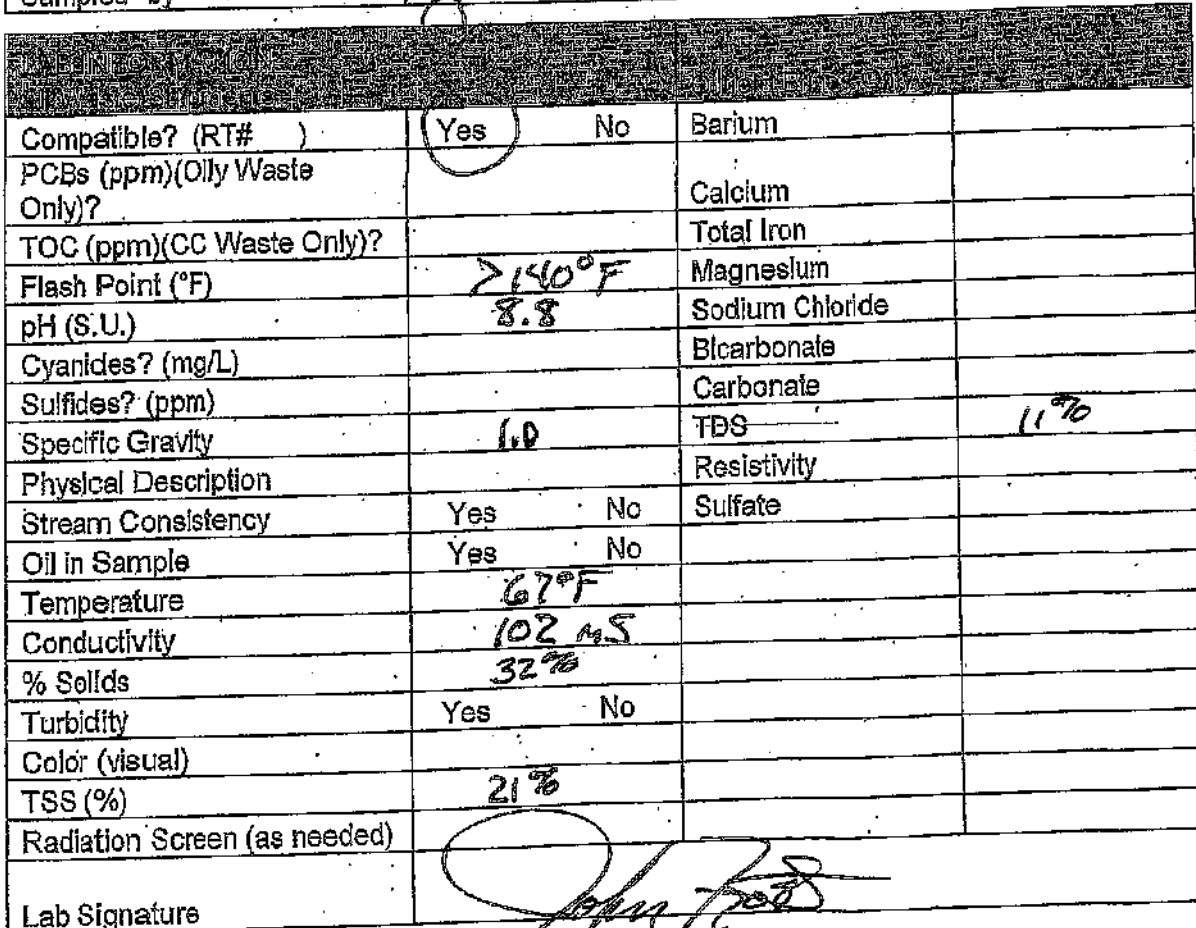 Sampled by
Compatible? (RT# ) Yes No Barium
PCBs (ppm)(Oily Waste
Only)? Calcium
TOC (ppm)(CC Waste Only)? Total Iron
Flash Point (°F) >140°F Magnesium
pH (S.U.) 8.8 Sodium Chloride
Cyanides? (mg/L) Bicarbonate
Sulfides? (ppm) Carbonate
Specific Gravity 1.0 TDS 11%
Physical Description Resistivity
Stream Consistency Yes No Sulfate
Oil in Sample Yes No
Temperature 67°F
Conductivity 102 mS
% Solids 32%
Turbidity Yes No
Color (visual)
TSS (%) 21%
Radiation Screen (as needed)
Lab Signature John